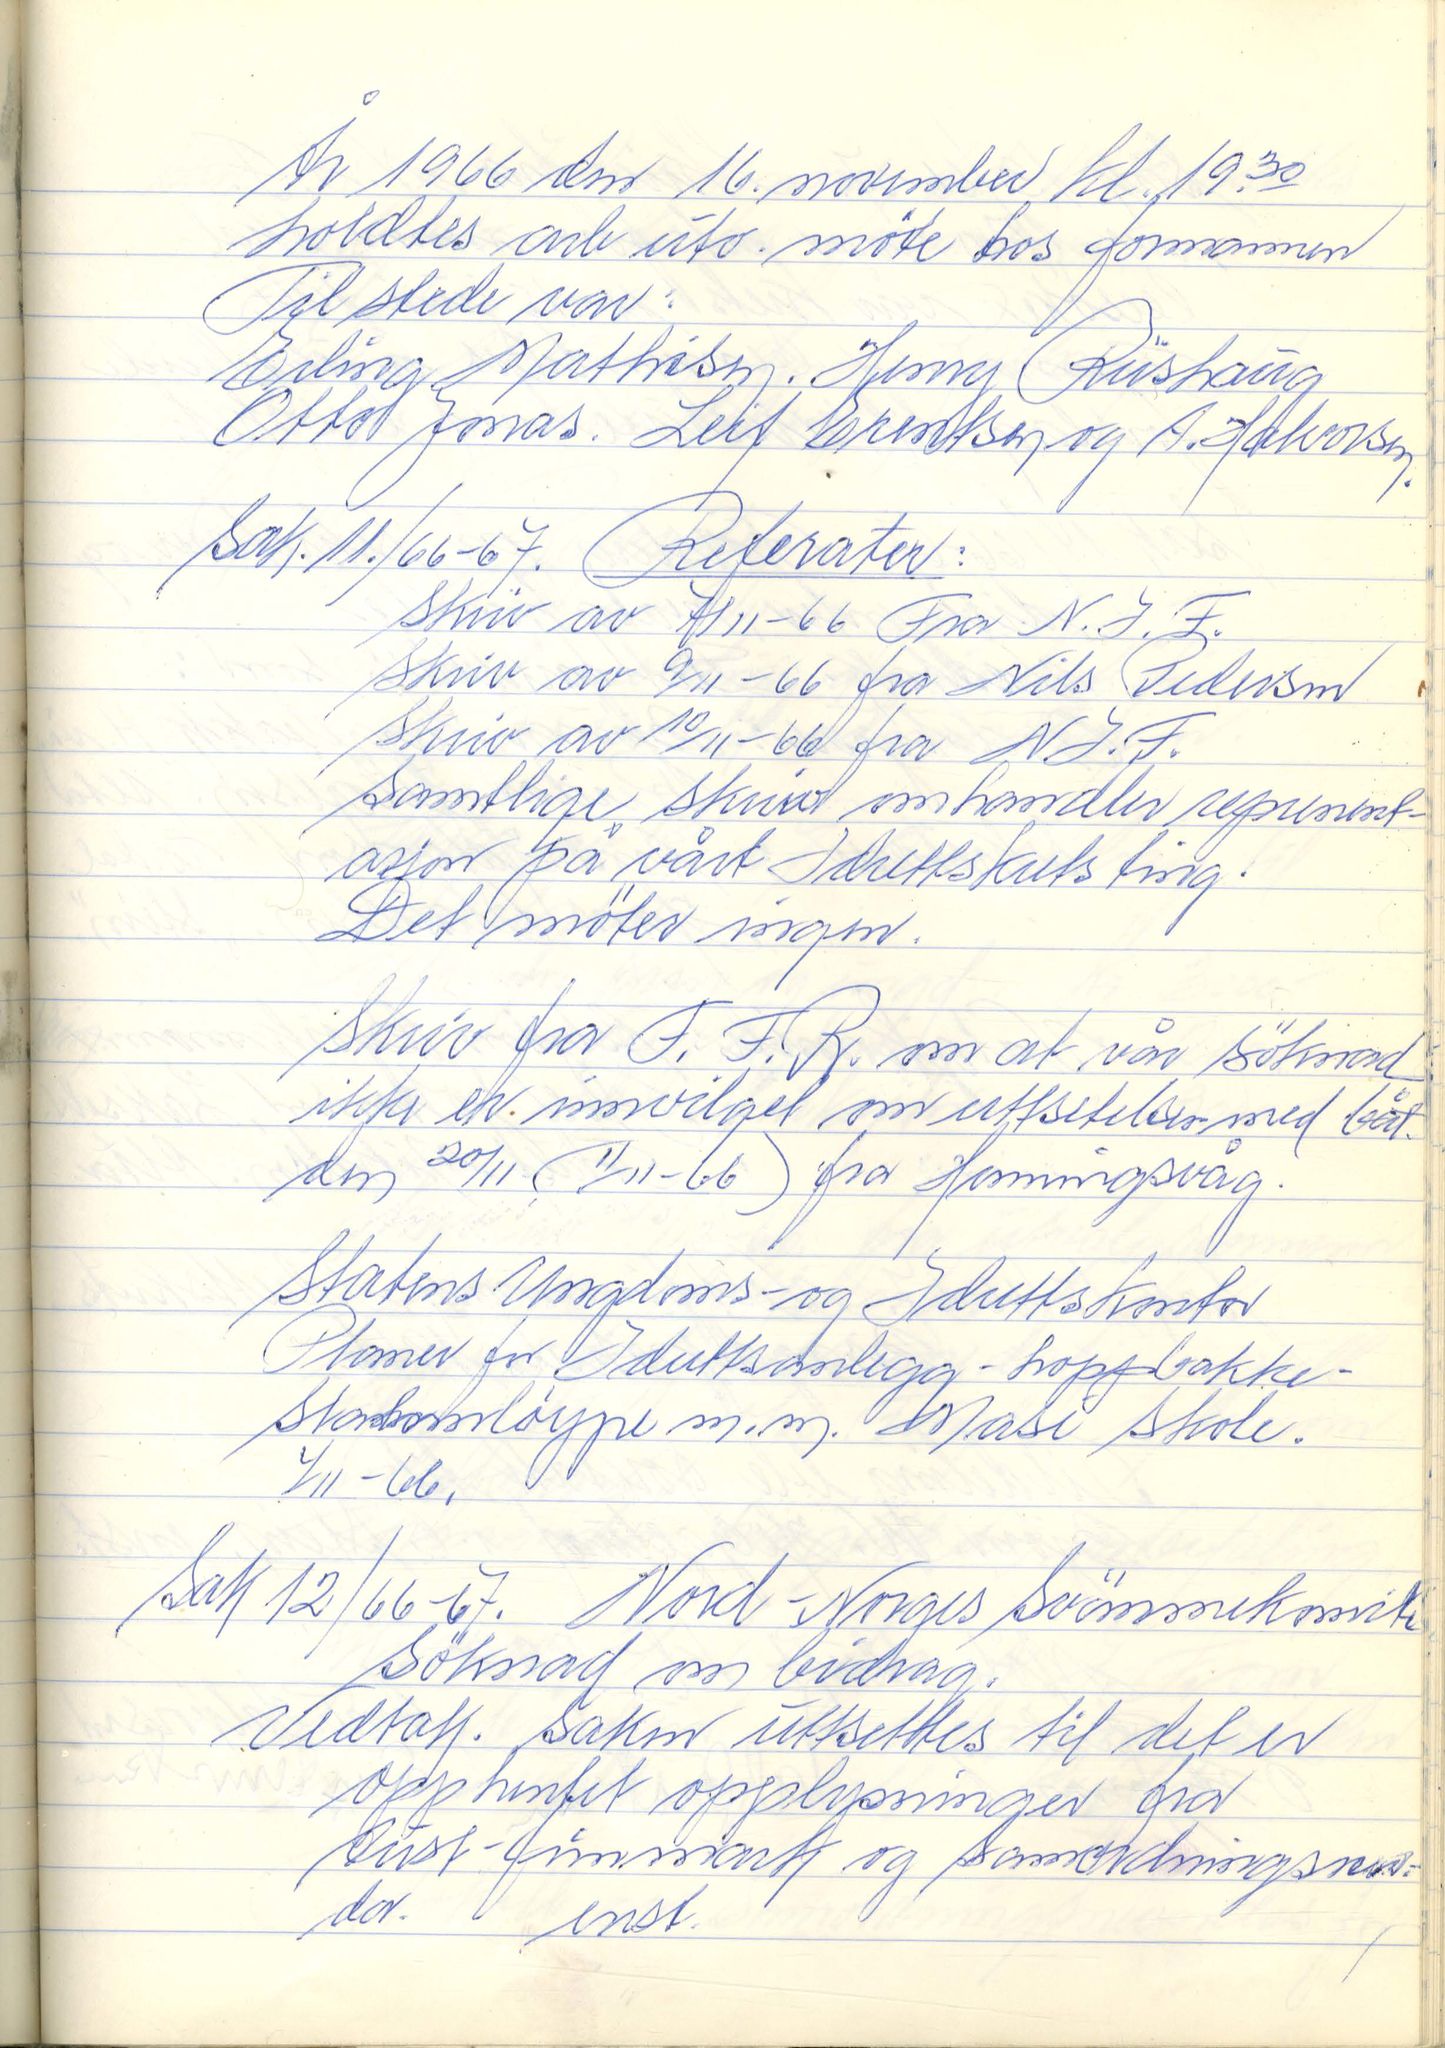 År 1966 den 16. november kl. 19.30
holdtes arb utv. möte hos formannen
Til stede var:
Erling Mathisen. Henry Rüshaug
Otto Jonas. Leif Erentsen og A. Halvorsen.
Sak. 11./66-67. Referater:
Skriv av 7/11-66 Fra N.I.F.
Skriv av 9/11-66 fra Nils Pedersen
Skriv av 10/11-66 fra N.I.F.
Samtlige skriv omhandler represent-
asjon på vårt Idrettskretsting.
Det möter ingen.
Skriv fra F.F.R. om at vår söknad
ikke er innvilget om utsetelse med båt.
den 20/11 (11/11-66) fra Honningsvåg.
Statens Ungdoms- og Idrettskontor
Planer for Idrettsanlegg - hoppbakke-
löype m.m. Masi Skole.
1/11-66.
Sak 12/66-67. Nord-Norges Svömmekomite
Söknad om bidrag.
Vedtak. Saken utsettes til det er
opphentet opplysninger fra
Aust-finnmark og samordningsnem-
da. enst.